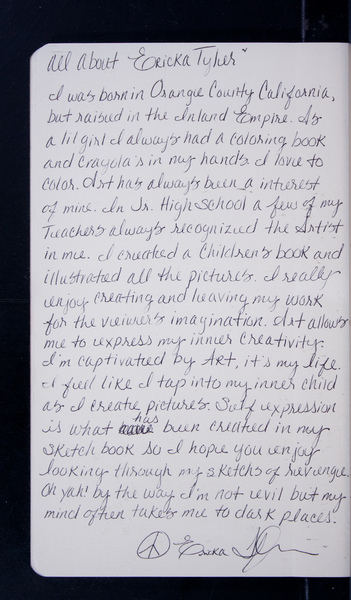 All About "Ericka Tyher"
I was born in Orange County California,
but raised in the Inland Empire. As
a lil girl I always had a coloring book
and Crayola's in my hands I love to
color. Art has always been a interest
of mine. In Jr. High School a few of my
Teachers always recognized the Artist
in me. I created a Children's book and
illustrated all the pictures. I really
enjoy creating and leaving my work
for the veiwer's imagination. Art allows
me to express my inner creativity.
I'm captivated by ART, it's my life.
I feel like I tap into my inner child
as I create pictures. Self expression
is what has been created in my
sketch book so I hope you enjoy
looking through my sketchs of revenge.
Oh yah! by the way I'm not evil but my
mind often takes me to dark places.
Ericka